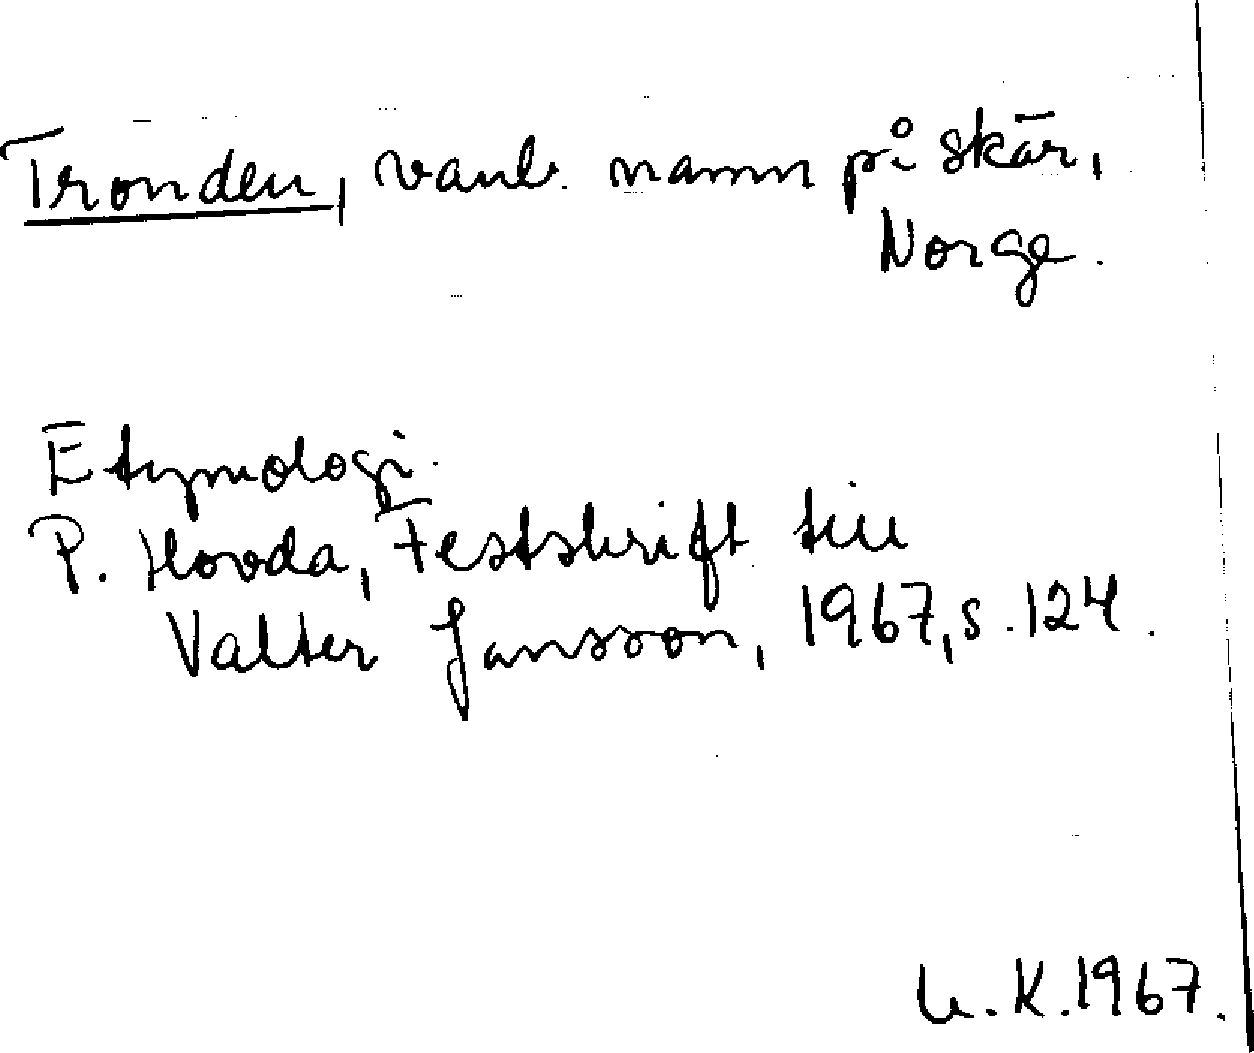 Tronden, vanl. namn på skär,
Norge.
Etymologi.
P. Hovda, Festskrift till
Valter Jansson, 1967, s. 124.
U.K. 1967.